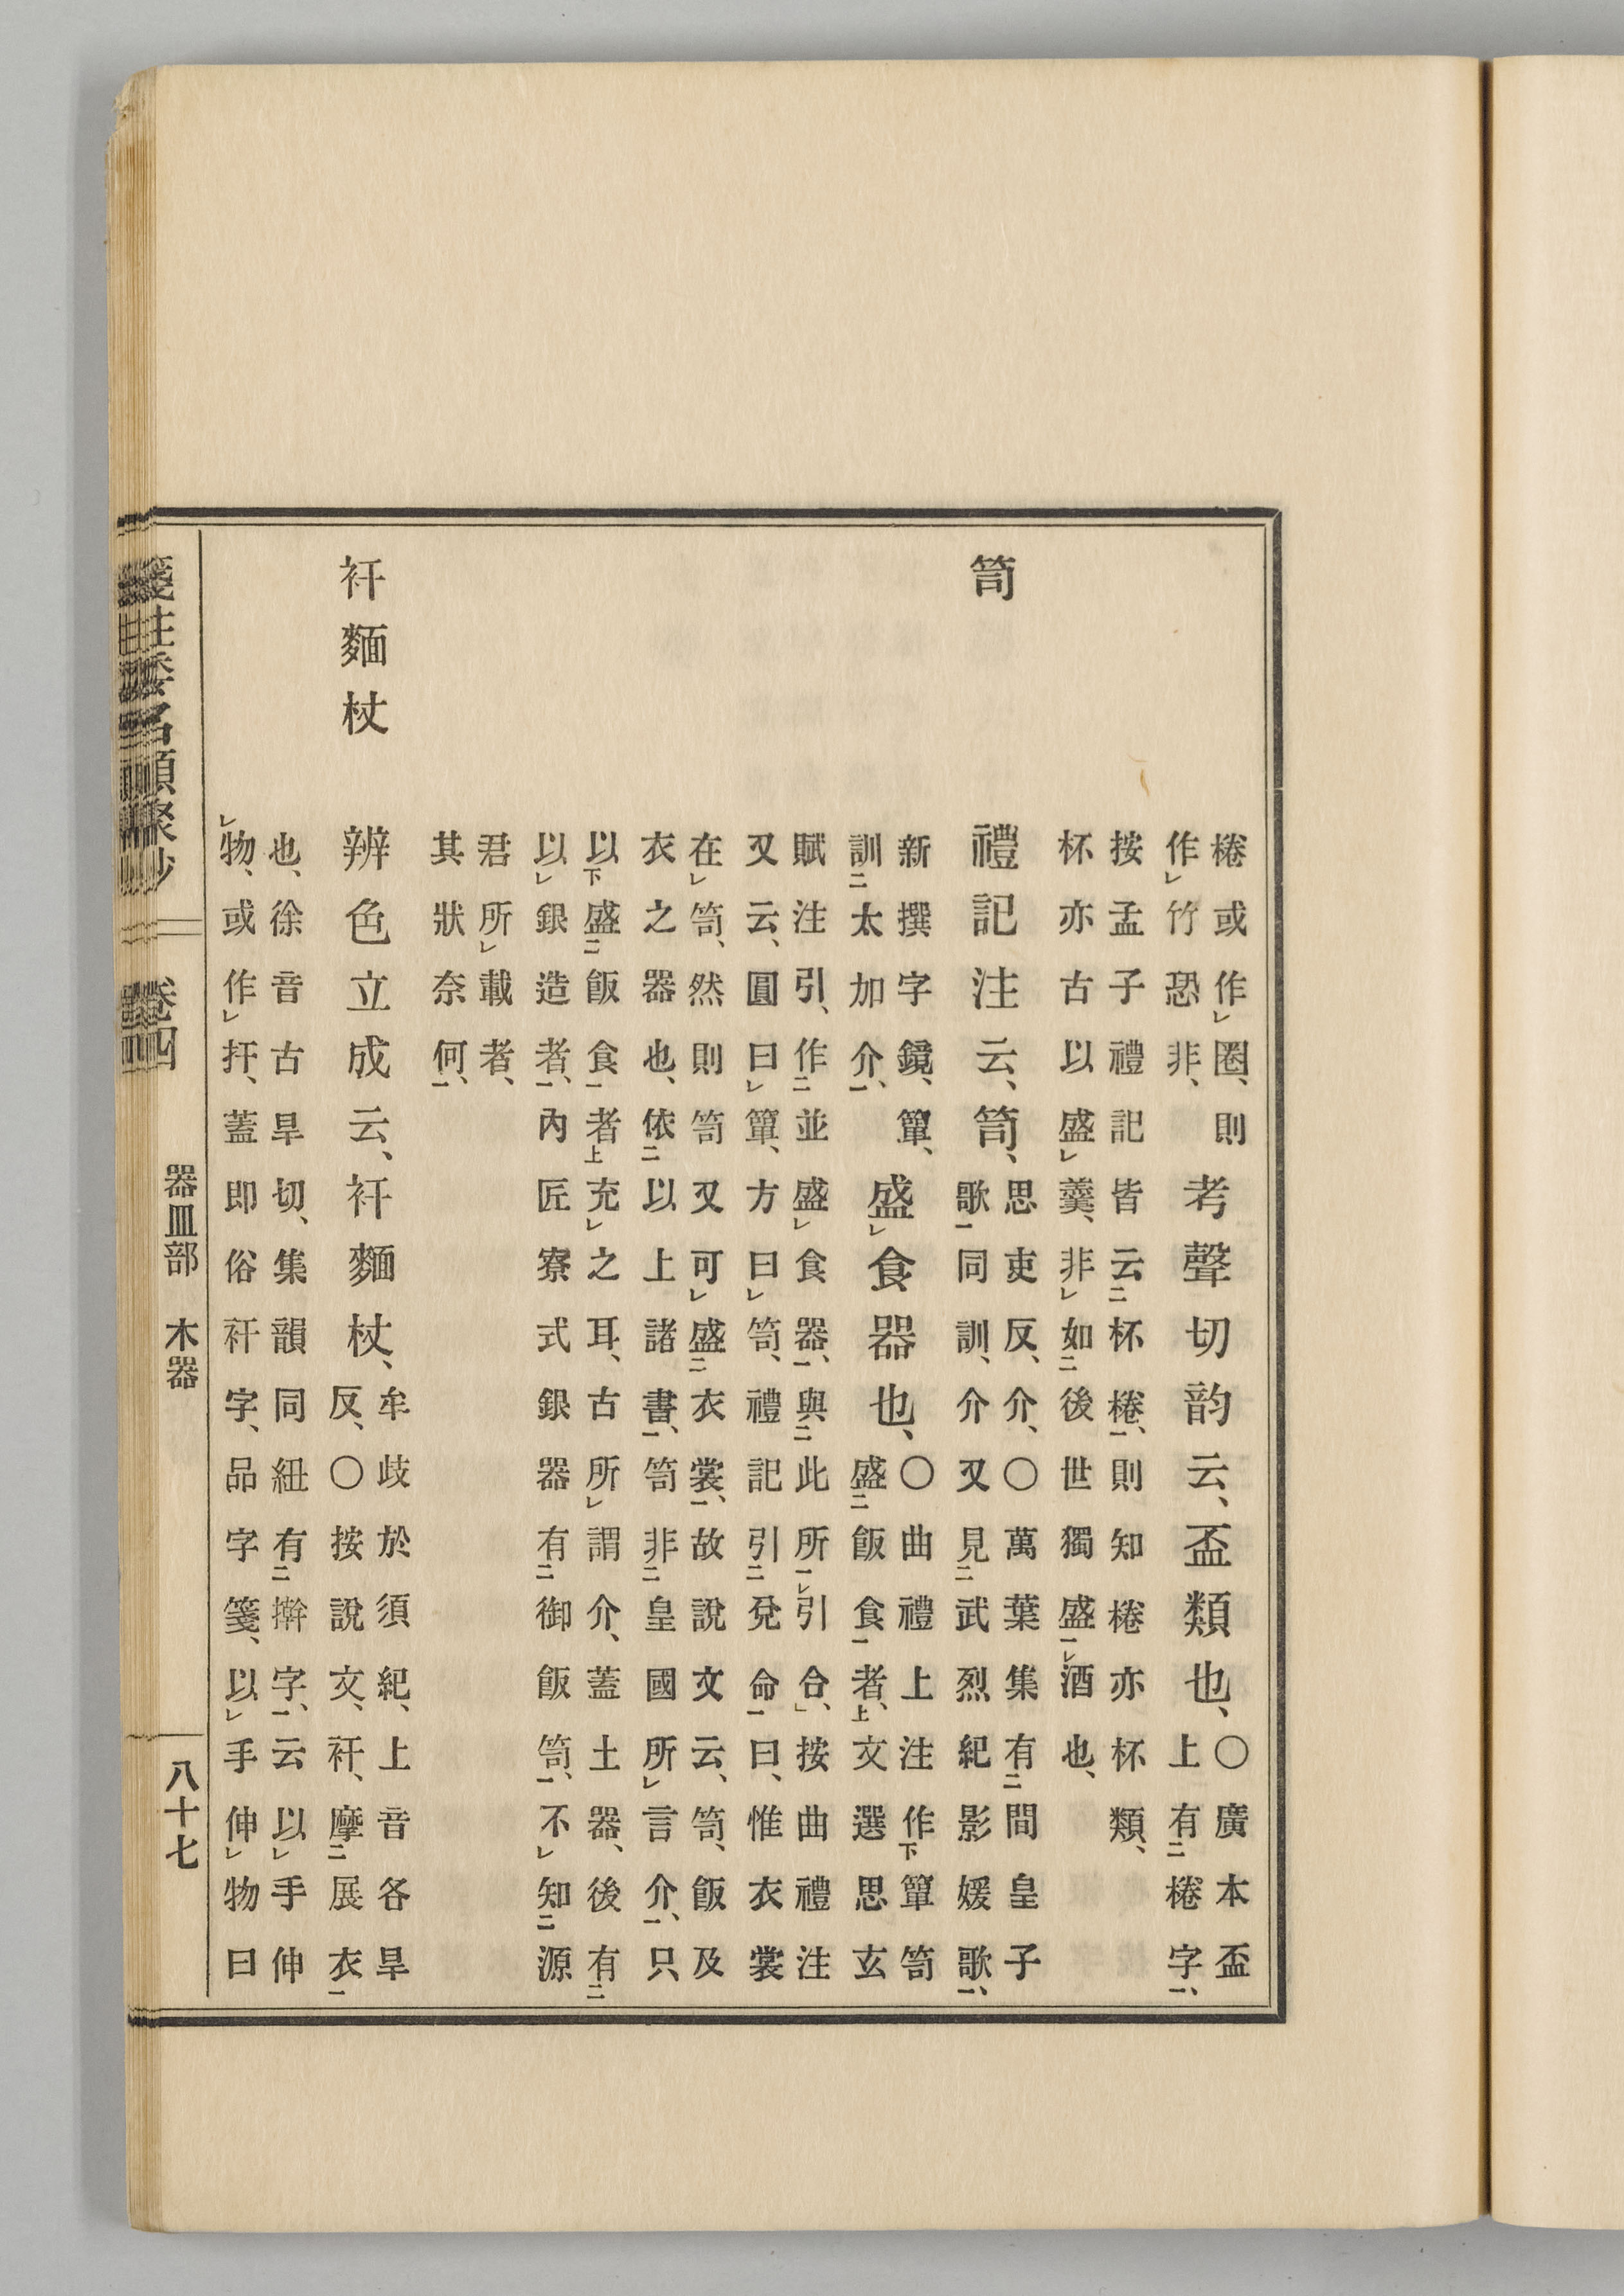 棬或作圈、則
作竹恐非、
考聲切韵云、盃類也、
○廣本盃
上有棬字、
按孟子禮記皆云杯棬、則知棬亦杯類、
杯亦古以盛羹、非如後世獨盛酒也、
笥
禮記注云、笥、
思吏反、介、○萬葉集有間皇子
歌同訓、介又見武烈紀影媛歌、
新撰字鏡、簞、
訓太加介、
盛食器也、
○曲禮上注作簞笥
盛飯食者、文選思玄
賦注引、作並盛食器、與此所引合、按曲禮注
又云、圓曰簞、方曰笥、禮記引兌命曰、惟衣裳
在笥、然則笥又可盛衣裳、故說文云、笥、飯及
衣之器也、依以上諸書、笥非皇國所言介、只
以盛飯食者充之耳、古所謂介、蓋土器、後有
以銀造者、內匠寮式銀器有御飯笥、不知源
君所載者、
其狀奈何、
衦麵杖
辨色立成云、衦麵杖、
牟歧於須紀、上音各旱
反、○按說文、衦、摩展衣
也、徐音古旱切、集韻同紐有擀字、云以手伸
物、或作扞、蓋即俗衦字、品字箋、以手伸物曰
箋註倭名類聚抄 卷四 器皿部 木器 八十七